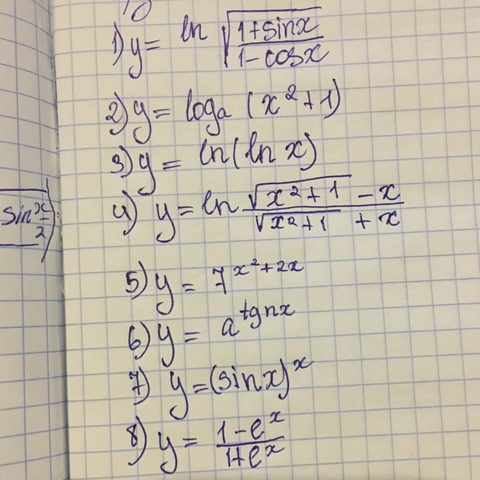 1) y = ln √((1+sinx)/(1-cosx))
2) y = logₐ (x²+1)
3) y = ln(ln x)
sin x/2
4) y = ln (√(x²+1) - x)/(√(x²+1) + x)
5) y = 7^(x²+2x)
6) y = a^(tgnx)
7) y = (sinx)^x
8) y = (1-e^x)/(1+e^x)